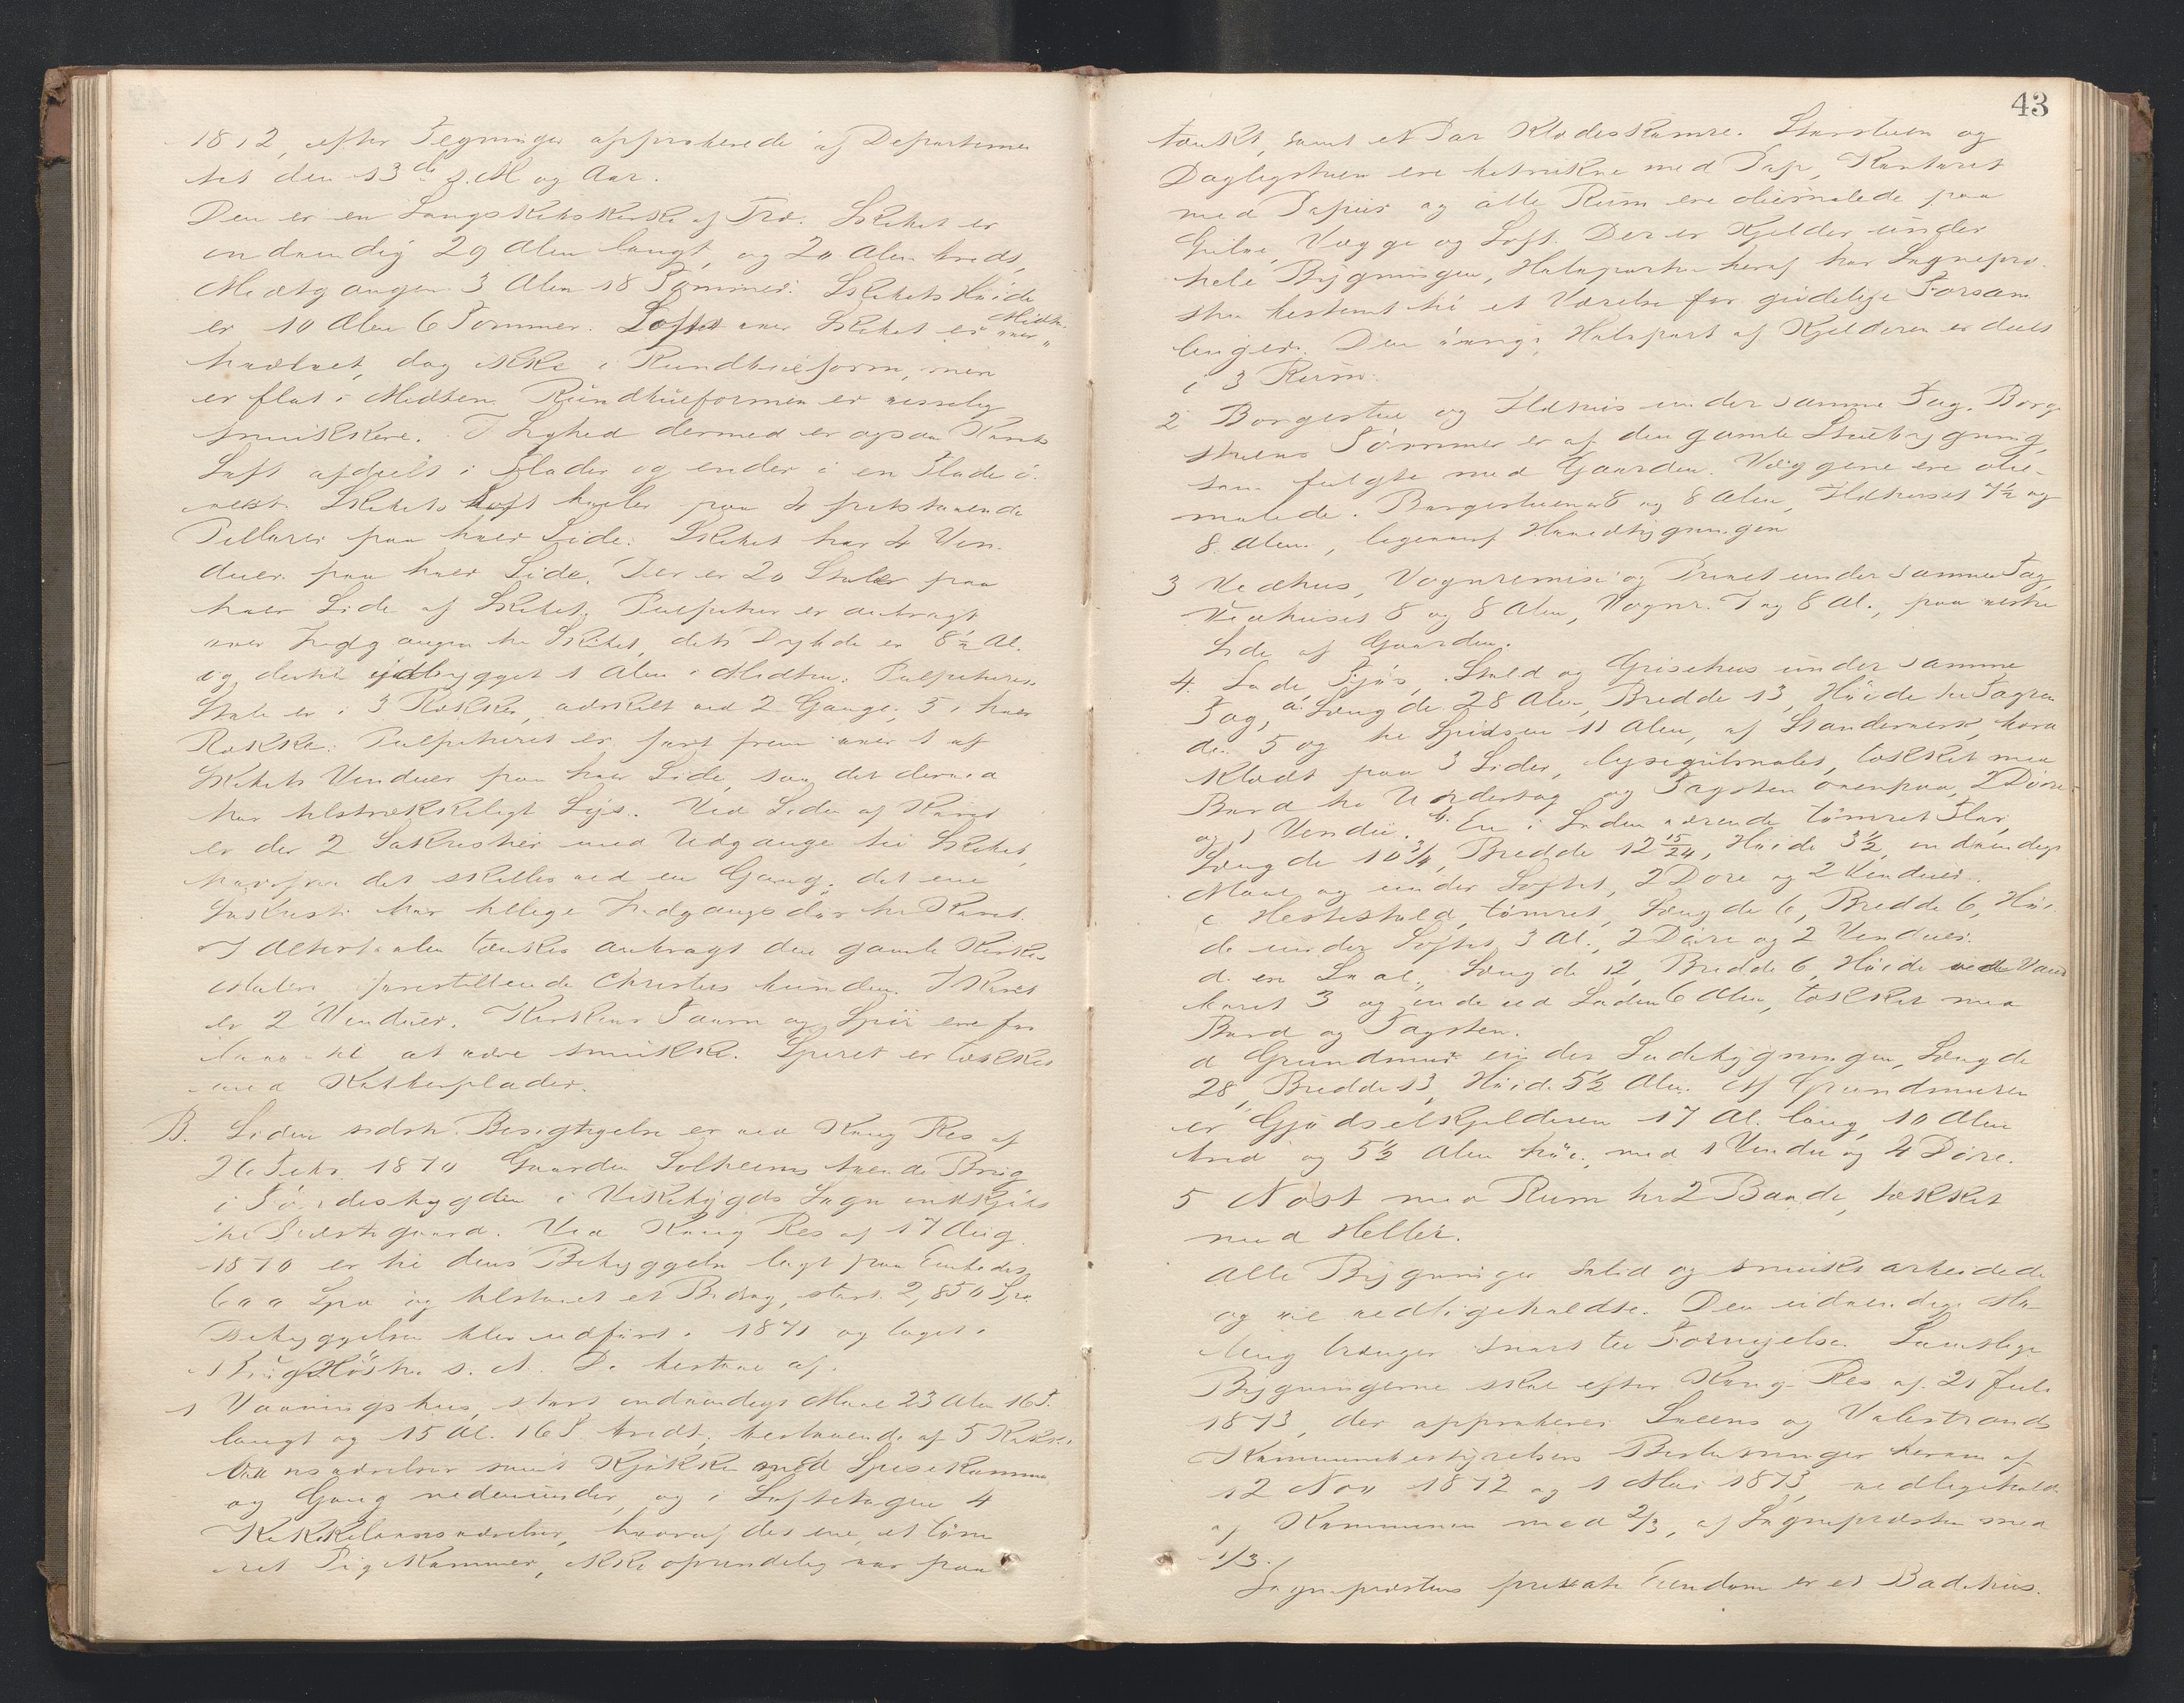 1872, efter Tegninger approberede af Departemen
tet den 13de s. M og Aar.
Den er en Langskibskirke af Træ. Skibet er
indvendig 29 Alen langt, og 20 Alen bredt,
Midtgangen 3 Alen 18 Tommer. Skibets Høide
er 10 Alen 6 Tommer. Loftet over Skibet er
hvælvet, dog ikke i Rundbueform, men
er flat i Midten. Rundbueformen er visselig
smukkere. I Lighed dermed er ogsaa Korets
Loft afdeelt i Flader og ender i en Flade ö-
verst. Skibets Loft hviler paa 4 fritstaaende
Pillarer paa hver Side. Skibet har 4 Vin-
duer paa hver Side. Der er 20 Stole paa
hver Side af Skibet. Pulpitur er anbragt
over Indgangen til Skibet, dets Dybde er 8½ Al.
og dertil udbygget 1 Alen i Midten. Pulpiturets
Stole er i 3 Rækker, adskilt ved 2 Gange, 5 i hver
Række. Pulpituret er ført frem over 1 af
Skibets Vinduer paa hver Side, saa det derved
har tilstrækkeligt Lys. Ved Siden af Koret
er der 2 Sakristier med Udgange til Skibet,
hvorfra det skilles ved en Gang; det ene
Sakristi har tillige Indgangsdør til Koret.
I Altertavlen tænkes anbragt den gamle Kirkes
Maleri forestillende Christus . I Koret
er 2 Vinduer. Kirkens Taarn og Spir ere for
lave til at være smukke. Spiret er tækket
med Kobberplader.
B. Siden sidste Besigtigelse er ved Kong Res af
26 Febr. 1870 Gaarden Solheims tvende Brug
i Førdesbygden i Vikebygds Sogn indkjøbt
til Præstegaard. Ved Kong Res af 17 Aug
1870 er til dens Bebyggelse lagt paa Embedet
600 Spd og tilstaaet et Bidrag, stort 2,850 Spd
Bebyggelsen blev udført i 1871 og taget i
Brug Høsten s. A. De bestaae af
1 Vaaningshus, stort indvendigt Maal 23 Alen 16 T.
langt og 15 Al. 16 T bredt, bestaaende af 5 Kakkel-
ovnsværelser samt Kjøkken med Spisekammer
og Gang nedenunder, og i Loftetagen 4
Kakkelovnsværelser, hvoraf det ene, et tøm
ret Pigekammer, ikke oprindelig var paa
43
tænkt, samt et Par Klædeskamre. Storstuen og
Dagligstuen ere betrukne med Pap, Kontoret
med Papir og alle Rum ere oliemalede paa
Gulve, Vægge og Loft. Der er Kjelder under
hele Bygningen, Halvparten heraf har Sognepræ-
sten bestemt til et Værelse for gudelige Forsam
linger. Den øvrige Halvpart af Kjelderen er deelt
i 3 Rum.
2 Borgestue og Ildhus under samme Tag. Borge
stuens Tømmer er af den gamle Stuebygning,
som fulgte med Gaarden. Væggene ere olie-
malede. Borgestuen 8 og 8 Alen, Ildhuset 7½ og
8 Alen, ligeoverf Hovedbygningen
3 Vedhus, Vognremise og Privet under samme Tag,
Vedhuset 8 og 8 Alen, Vognr. 7 og 8 Al., paa vestre
Side af Gaarden.
4. Lade, Fjøs, Stald og Grisehus under samme
Tag, a. Længde 28 Alen, Bredde 13, Høide til Tagra
den 5 og til Spidsen 11 Alen, af Standerverk, bord
klædt paa 3 Sider, lysegulmalet, tækket med
Bord til Undertag og Tagsten ovenpaa, 2 Døre
og 1 Vindu. b. En i Laden værende tømret Flor,
Længde 10¾, Bredde 12 15/24, Høide 3½, indvendigt
Maal og under Loftet, 2 Døre og 2 Vinduer.
c Hestestald, tømret, Længde 6, Bredde 6, Høi-
de under Loftet 3 Al., 2 Døre og 2 Vinduer.
d. en Sval, Længde 12, Bredde 6, Høide ved Vand
bordet 3 og inde ved Laden 6 Alen, tækket med
Bord og Tagsten.
d Grundmur under Ladebygningen, Længde
28, Bredde 13, Høide 5½ Alen. Af Grundmuren
er Gjødselkjelderen 17 Al. lang, 10 Alen
bred og 5½ Alen høi, med 1 Vindu og 4 Døre.
5 Nøst med Rum til 2 Baade, tækket
med Heller.
Alle Bygninger solid og smukt arbeidede
og vel vedligeholdte. Den udvendige Ma-
ling trænger snart til Fornyelse. Samtlige
Bygningerne skal efter Kong Res af 21 Juli
1873, der approberer Sveens og Valestrands
Kommunebestyrelsers Beslutninger herom af
12 Nov 1872 og 1 Mai 1873, vedligeholdes
af Kommunen med 2/3, af Sognepræsten med
1/3.
Sognepræstens private Eiendom er et Badehus.